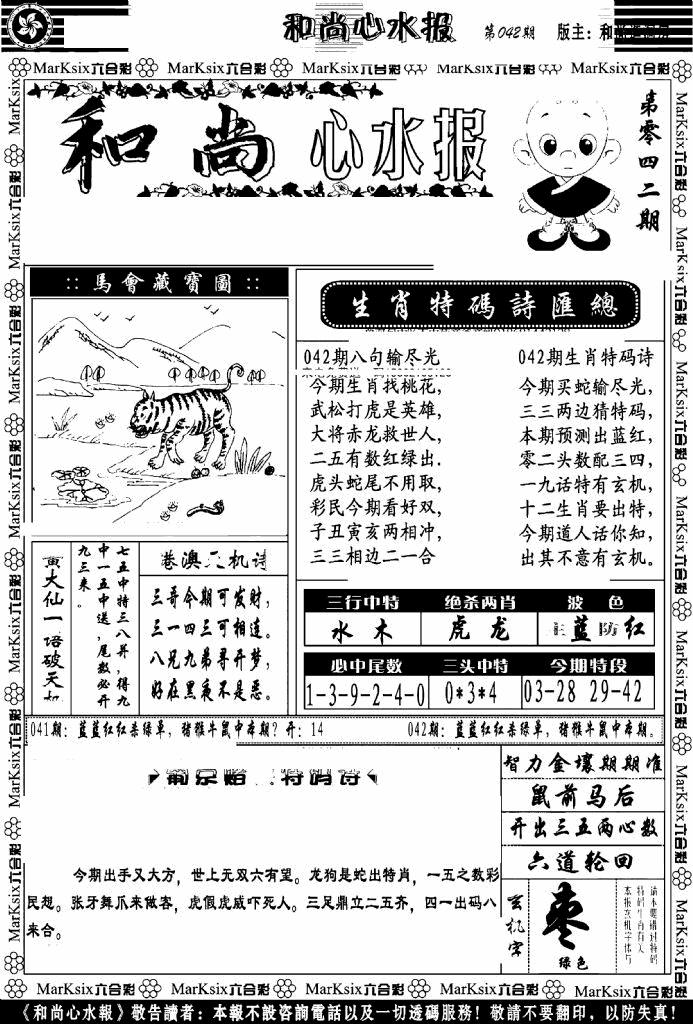 和尚心水报 第042期 版主：和
MarKsix六合彩 MarKsix六合彩 MarKsix六合彩 MarKsix六合彩 MarKsix六合彩
和尚 心水报
第零四二期
::馬會藏寶圖::
生肖特碼詩匯總
042期八句输尽光
今期生肖找桃花,
武松打虎是英雄,
大将赤龙救世人,
二五有数红绿出.
虎头蛇尾不用取,
彩民今期看好双,
子丑寅亥两相冲,
三三相边二一合
042期生肖特码诗
今期买蛇输尽光,
三三两边猜特码,
本期预测出蓝红,
零二头数配三四,
一九话特有玄机,
十二生肖要出特,
今期道人话你知,
出其不意有玄机。
黄大仙一语破天机
七五中特三八算，得九
中一五中送，尾数必开
九三来。
港澳 机诗
三哥今期可发财，
三一四三可相连。
八兄九弟寻开梦，
好在黑夜不是恶。
三行中特 绝杀两肖 波 色
水 木 虎 龙 主蓝防红
必中尾数 三头中特 今期特段
1-3-9-2-4-0 0*3*4 03-28 29-42
041期：蓝蓝红红杀绿单，猪猴牛鼠中本期？开：14
042期：蓝蓝红红杀绿单，猪猴牛鼠中本期。
特码诗
今期出手又大方，世上无双六有望。龙狗是蛇出特肖，一五之数彩
民想。张牙舞爪来做客，虎假虎威吓死人。三足鼎立二五齐，四一出码八
来合。
智力金壤期期准
鼠前马后
开出三五两心数
六道轮回
玄机字
枣
绿色
请不要错过特码
特码生肖有关
本报玄机字体与
MarKsix六合彩 MarKsix六合彩 MarKsix六合彩 MarKsix六合彩 MarKsix六合彩
《和尚心水報》敬告讀者：本報不設咨詢電話以及一切透碼服務！敬請不要翻印，以防失真！